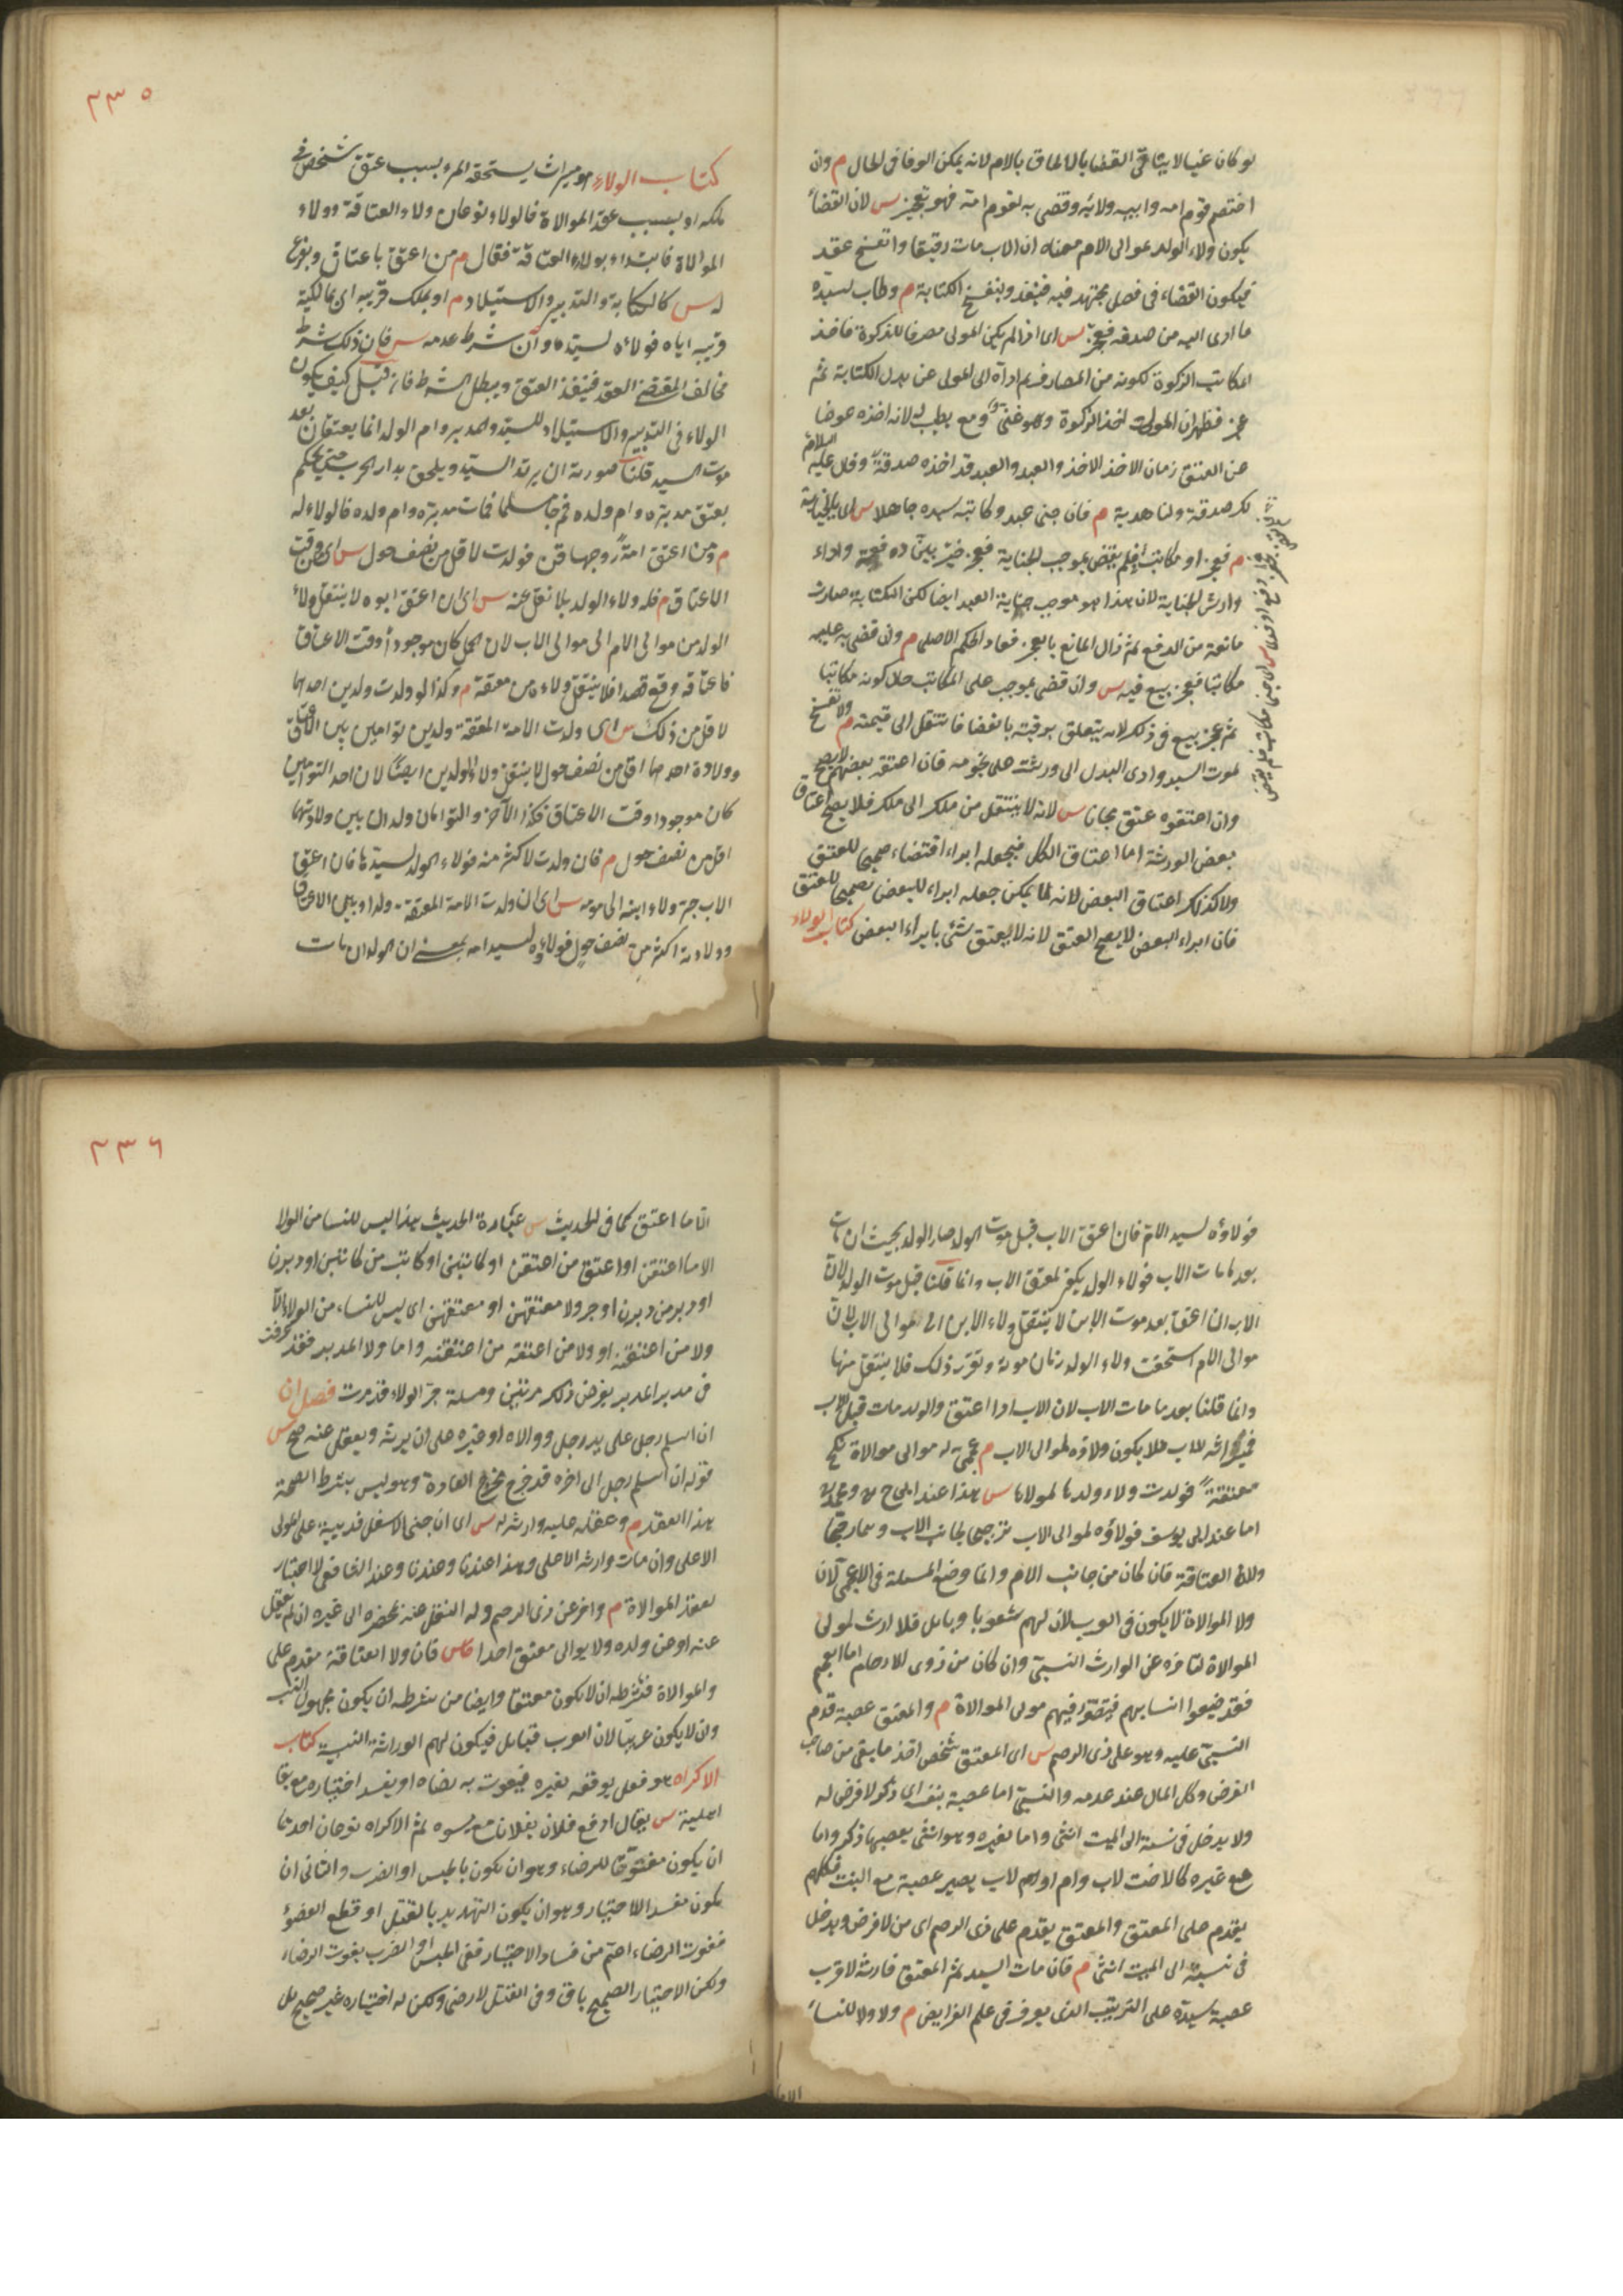 لو كان غنيا لايتأتى القضا بالالحاق بالام لانه يمكن الوفا فى الحال م وان
اختصم قوم امه وابيه ولائه وقضى به لقوم امه فهو تعجيز س لان القضاء
يكون ولاء الولد لموالى الام معناه ان الاب مات رقيقا وانفسخ عقد
فيكون القضاء فى فصل مجتهد فيه فينفذ وينفسخ الكتابة م وطاب لسيده
ما ادى اليه من صدقة فعجز س اى اذا لم يكن المولى مصرفا للزكوة فاخذ
المكاتب الزكوة لكونه من المصارف ثم اداه الى المولى عن بدل الكتابة ثم
عجز فظهر ان المولى اخذ الزكوة وهو غنى ومع يطيب له لانه اخذه عوضا
عن العتق زمان الاخذ والعبد قد اخذه صدقة وقال عليه السلام
لك صدقة ولنا هدية م فان جنى عبد وكاتبه سيده جاهلا س اى بالجناية
م فعجز او مكاتب فلم يقض بموجب الجناية فعجز خير بين دفعه واداء
وارش الجناية لان هذا هو موجب جناية العبد ايضا لكن الكتابة صارت
مانعة من الدفع ثم زال المانع بالعجز فعاد الحكم الاصلى م وان قضى به عليه
مكاتبا فعجز بيع فيه س وان قضى بموجب على المكاتب حال كونه مكاتبا
ثم عجز بيع فى ذلك لانه يتعلق برقبته بالقضا فانتقل الى قيمته م ولا تنفسخ
لموت السيد وادى البدل الى ورثته على نجومه فان اعتقه بعضهم لا يصح
وان اعتقوه عتق مجانا س لانه لا ينتقل من ملك الى ملك فلا يصح اعتاق
بعض الورثة اما اعتاق الكل فيجعله ابراء اقتضاء تصحيحا للعتق
ولا كذلك اعتاق البعض لانه لا يمكن جعله ابراء للبعض تصحيحا للعتق
فان ابراء البعض لا يصح العتق لانه لا يعتق شئ بابراء البعض كتاب الولاء
٢٣٥
كتاب الولاء هو ميراث يستحقه المرء بسبب عتق شخص فى
ملكه او بسبب عقد الموالاة فالولاء نوعان ولاء العتاقة وولاء
الموالاة فابتداء بولاء العتاقة فقال م من اعتق باعتاق وبفرع
له س كالكتابة والتدبير والاستيلاد م او بملك قريبه اى بمالكية
قريبه اياه فولاؤه لسيده وان شرط عدمه س فان ذلك شرط
مخالف لمقتضى العقد فينفذ العتق ويبطل الشرط فان قيل كيف يكون
الولاء فى التدبير والاستيلاد للسيد والمدبر وام الولد انما يعتقان بعد
موت السيد قلنا صورته ان يرتد السيد ويلحق بدار الحرب حتى يحكم
بعتق مدبره وام ولده ثم جاء مسلما فمات مدبره وام ولده فالولاء له
م ومن اعتق امة زوجها قن فولدت لاقل من نصف حول س اى من وقت
الاعتاق م فله ولاء الولد بلا نقل عنه س اى ان اعتق ابوه لا ينتقل ولاء
الولد من موالى الام الى موالى الاب لان الحمل كان موجودا وقت الاعتاق
فاعتاقه وقع قصدا فلا ينتقل ولاءه من معتقه م وكذا لو ولدت ولدين احدهما
لاقل من ذلك س اى ولدت الامة المعتقة ولدين توامين بين الاعتاق
وولادة احدهما اقل من نصف حول لا ينتقل ولاء الولدين ايضا لان احد التوامين
كان موجودا وقت الاعتاق فكذا الآخر والتوامان ولدان بين ولادتهما
اقل من نصف حول م فان ولدت لاكثر منه فولاء الولد لسيدها فان اعتق
الاب جر ولاء ابنه الى قومه س اى ان ولدت الامة المعتقة ولدا وبين الاعتاق
وولادته اكثر من نصف حول فولاؤه لسيد امه بمعنى ان الولد ان مات
فولاؤه لسيد الام فان اعتق الاب قبل موت الولد صار الولد بحيث ان مات
بعد ما مات الاب فولاء الولد يكون لمعتق الاب وانما قلنا قبل موت الولد لان
الاب ان اعتق بعد موت الابن لا ينتقل ولاء الابن الى موالى الاب لان
موالى الام استحقت ولاء الولد زمان موته وتقرر ذلك فلا ينتقل منها
وانما قلنا بعد ما مات الاب لان الاب اذا اعتق والولد مات قبل الاب
فميراثه للاب فلا يكون ولاؤه لموالى الاب م عجمى له موالى موالاة نكح
معتقة فولدت ولاء ولدها لمولاها س هذا عند ابى ح ره ومحمد ره
اما عند ابى يوسف فولاؤه لموالى الاب ترجيحا لجانب الاب وهما رجحا
ولاء العتاقة فان كان من جانب الام وانما وضع المسئلة فى الاعجمى لان
ولاء الموالاة لا يكون فى العرب لان لهم شعوبا وقبائل فلا ارث لمولى
الموالاة لتاخره عن الوارث النسبى وان كان من ذوى الارحام اما العجم
فقد ضيعوا انسابهم فيتصور فيهم مولى الموالاة م والمعتق عصبة قدم
النسبى عليه وهو على ذى الرحم س اى المعتق شخص اخذ ما بقى من صاحب
الفرض وكل المال عند عدمه والنسبى اما عصبة بنفسه اى ذكر لا فرض له
ولا يدخل فى نسبته الى الميت انثى واما بغيره وهو انثى يعصبها ذكر واما
مع غيره كالاخت لاب وام او لاب يصير عصبة مع البنت فكلهم
يقدم على المعتق والمعتق يقدم على ذى الرحم اى من لا فرض ويدخل
فى نسبته الى الميت انثى م فان مات السيد ثم المعتق فارثه لاقرب
عصبة سيده على الترتيب الذى يعرف فى علم الفرايض م ولا ولاء للنساء
٢٣٦
الا ما اعتقن كما فى الحديث س عبارة الحديث هذا ليس للنسا من الولا
الا ما اعتقن او اعتق من اعتقن او كاتبن او كاتب من كاتبن او دبرن
او دبر من دبرن او جر ولا معتقهن او معتق معتقهن اى ليس للنساء من الولاء الا
ولا من اعتقنه او ولا من اعتقه من اعتقنه واما ولا المدبر فقد عرفت
فى مدبر المدبر بفرض ذلك مرتين ومسئلة جر الولاء قد مرت فصل ان
ان اسلم رجل على يد رجل ووالاه او غيره على ان يرثه ويعقل عنه صح س
قوله ان اسلم رجل الى اخره قد خرج مخرج العادة وهو ليس بشرط لصحة
هذا العقد م وعقله عليه وارثه له س اى ان جنى الاسفل فديته على المولى
الاعلى وان مات وارثه الاعلى وهذا عندنا وعند الشافعى لا اعتبار
لعقد الموالاة م واخر عن ذى الرحم وله النقل عنه بمحضره الى غيره ان لم يعقل
عنه او عن ولده ولا يوالى معتق احدا س فان ولا العتاقة مقدم على
والموالاة فشرطه ان لا يكون معتقا وايضا من شرطه ان يكون مجهول النسب
وان لا يكون عربيا لان العرب قبائل فيكون لهم الوراثة النسبية كتاب
الاكراه هو فعل يوقعه بغيره فيفوت به رضاه او يفسد اختياره مع بقا
اهليته س يقال اوقع فلان بفلان ما يسوه ثم الاكراه نوعان احدهما
ان يكون مفوتا للرضاء وهو ان يكون بالحبس او الضرب والثانى ان
يكون مفسدا للاختيار وهو ان يكون التهديد بالقتل او قطع العضو
ففوت الرضاء اعم من فساد الاختيار ففى الحبس او الضرب يفوت الرضاء
ولكن الاختيار الصحيح باق وفى القتل لا رضى ولكن له اختيار غير صحيح بل